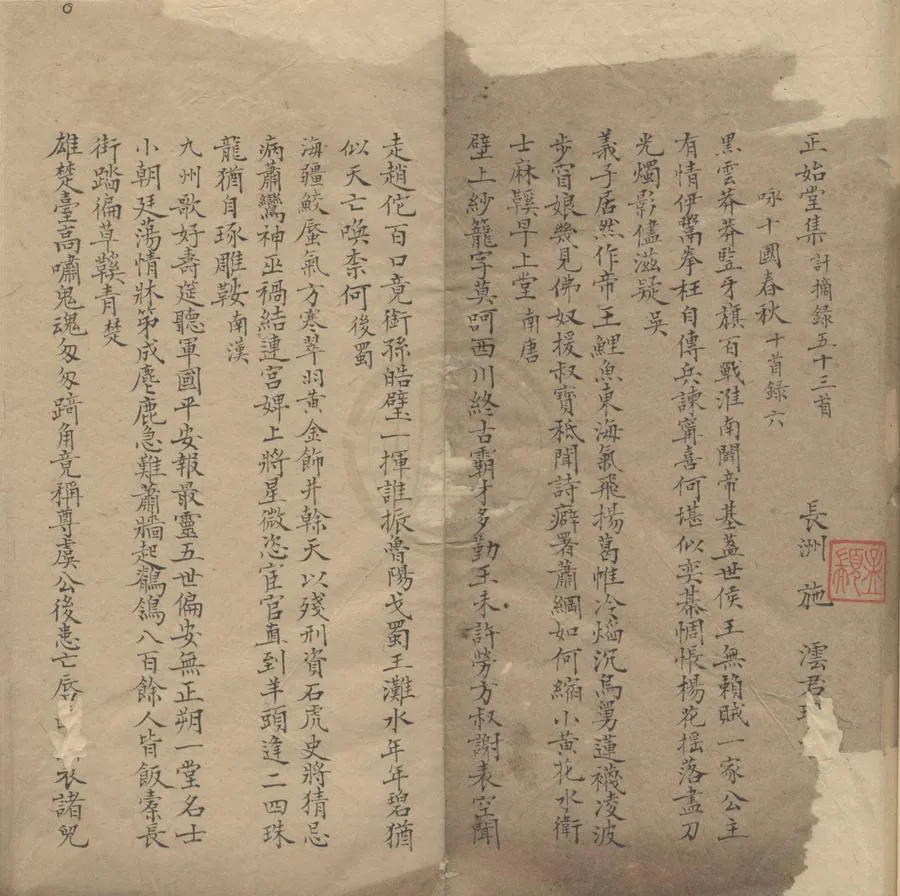 正始堂集計摘録五十三首 長洲 施 澐君
咏十國春秋十首録六
黑雲莽莽監牙旗百戰淮南闢帝基蓋世侯王無賴賊一家公主
有情伊鬻拳枉自傳兵諫甯喜何堪似奕棊惆悵楊花揺落盡刀
光燭影儘滋疑吳
義子居然作帝王鯉魚東海氣飛揚葛帷冷燄沉烏舅蓮襪凌波
步窅娘幾見佛奴援叔寶秪聞詩癖署蕭綱如何縮小黄花水衛
士麻鞵早上堂南唐
壁上紗籠字莫呵西川終古霸才多勤王未許勞方叔謝表空聞
走趙佗百口竟銜孫皓璧一揮誰振魯陽戈蜀王灘水年年碧猶
似天亡喚柰何後蜀
海疆鮫蜃氣方寒翠羽黄金飾井榦天以殘刑資石虎史將猜忌
病蕭鸞神巫禍結連宫婢上將星微恣宦官直到羊頭逢二四珠
龍猶自琢雕鞍南漢
九州歌好壽筵聽軍國平安報最靈五世偏安無正朔一堂名士
小朝廷蕩情牀第成麀鹿急難蕭牆起鶺鴒八百餘人皆飯橐長
街踏徧草鞵青楚
雄楚臺高嘯鬼魂匆匆踦角竟稱尊虞公後患亡唇 衣諸兒